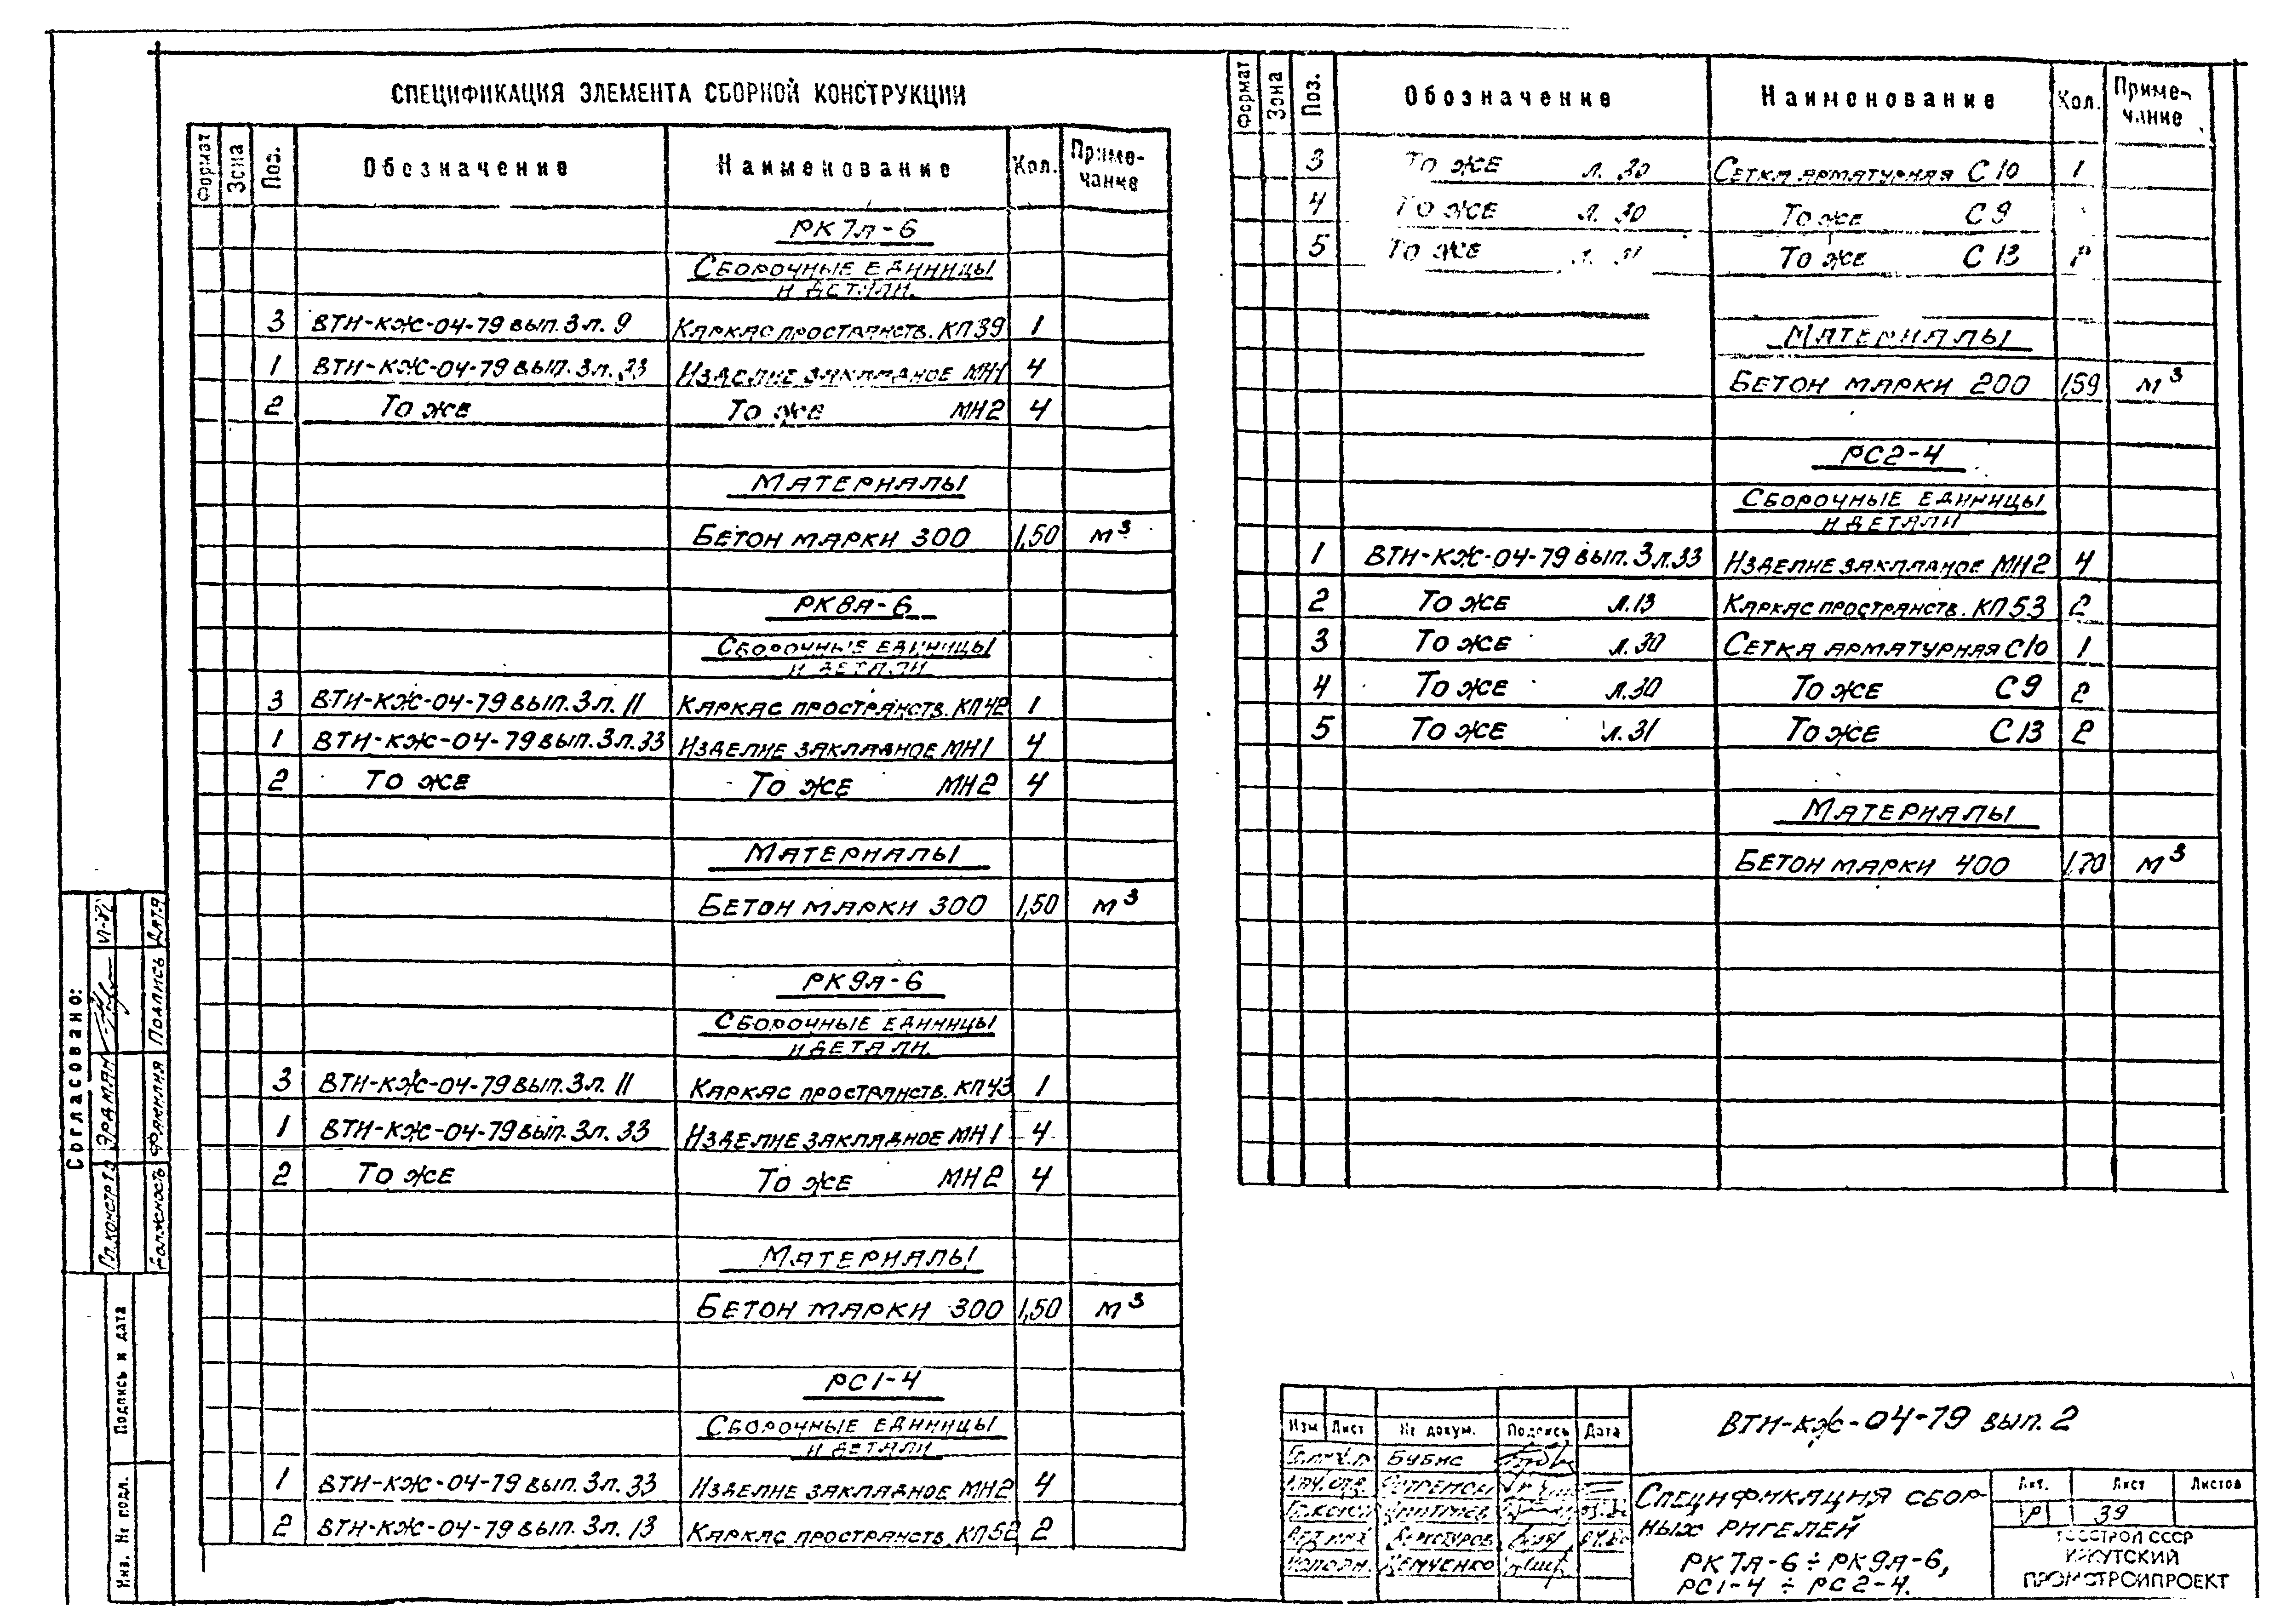 СПЕЦИФИКАЦИЯ ЭЛЕМЕНТА СБОРНОЙ КОНСТРУКЦИИ
Формат Зона Поз. Обозначение Наименование Кол. Приме-
чание
РК7А-6
СБОРОЧНЫЕ ЕДИНИЦЫ
И ДЕТАЛИ.
3 ВТИ-КЖ-04-79 ВЫП.3 Л. 9 КАРКАС ПРОСТРАНСТВ. КП39 1
1 ВТИ-КЖ-04-79 ВЫП.3 Л. 33 ИЗДЕЛИЕ ЗАКЛАДНОЕ МН1 4
2 ТО ЖЕ ТО ЖЕ МН2 4
МАТЕРИАЛЫ
БЕТОН МАРКИ 300 1,50 М³
РК8А-6
СБОРОЧНЫЕ ЕДИНИЦЫ
И ДЕТАЛИ
3 ВТИ-КЖ-04-79 ВЫП.3 Л. 11 КАРКАС ПРОСТРАНСТВ. КП42 1
1 ВТИ-КЖ-04-79 ВЫП.3 Л.33 ИЗДЕЛИЕ ЗАКЛАДНОЕ МН1 4
2 ТО ЖЕ ТО ЖЕ МН2 4
МАТЕРИАЛЫ
БЕТОН МАРКИ 300 1,50 М³
РК9А-6
СБОРОЧНЫЕ ЕДИНИЦЫ
И ДЕТАЛИ.
3 ВТИ-КЖ-04-79 ВЫП.3 Л. 11 КАРКАС ПРОСТРАНСТВ. КП43 1
1 ВТИ-КЖ-04-79 ВЫП.3 Л. 33 ИЗДЕЛИЕ ЗАКЛАДНОЕ МН1 4
2 ТО ЖЕ ТО ЖЕ МН2 4
МАТЕРИАЛЫ
БЕТОН МАРКИ 300 1,50 М³
РС1-4
СБОРОЧНЫЕ ЕДИНИЦЫ
И ДЕТАЛИ
1 ВТИ-КЖ-04-79 ВЫП. 3 Л. 33 ИЗДЕЛИЕ ЗАКЛАДНОЕ МН2 4
2 ВТИ-КЖ-04-79 ВЫП. 3 Л. 13 КАРКАС ПРОСТРАНСТВ. КП52 2
Формат Зона Поз. Обозначение Наименование Кол. Приме-
чание
3 ТО ЖЕ Л. 30 СЕТКА АРМАТУРНАЯ С10 1
4 ТО ЖЕ Л. 30 ТО ЖЕ С9
5 ТО ЖЕ Л. 31 ТО ЖЕ С13
МАТЕРИАЛЫ
БЕТОН МАРКИ 200 1,59 М³
РС2-4
СБОРОЧНЫЕ ЕДИНИЦЫ
И ДЕТАЛИ
1 ВТИ-КЖ-04-79 ВЫП. 3 Л.33 ИЗДЕЛИЕ ЗАКЛАДНОЕ МН2 4
2 ТО ЖЕ Л.13 КАРКАС ПРОСТРАНСТВ. КП53 2
3 ТО ЖЕ Л.30 СЕТКА АРМАТУРНАЯ С10 1
4 ТО ЖЕ Л.30 ТО ЖЕ С9 2
5 ТО ЖЕ Л.31 ТО ЖЕ С13 2
МАТЕРИАЛЫ
БЕТОН МАРКИ 400 1,70 М³
Согласовано:
ГЛ.КОНСТР ЭРДМАН
Должность Фамилия Подпись Дата
Подпись и дата
Инв. № подл.
Изм Лист № докум. Подпись Дата
БУБИС
ДЕМЧЕНКО
ВТИ-КЖ-04-79 ВЫП. 2
СПЕЦИФИКАЦИЯ СБОР-
НЫХ РИГЕЛЕЙ
РК7А-6 ÷ РК9А-6,
РС1-4 ÷ РС2-4.
Лит. Лист Листов
Р 39
ГОССТРОЙ СССР
ИРКУТСКИЙ
ПРОМСТРОЙПРОЕКТ